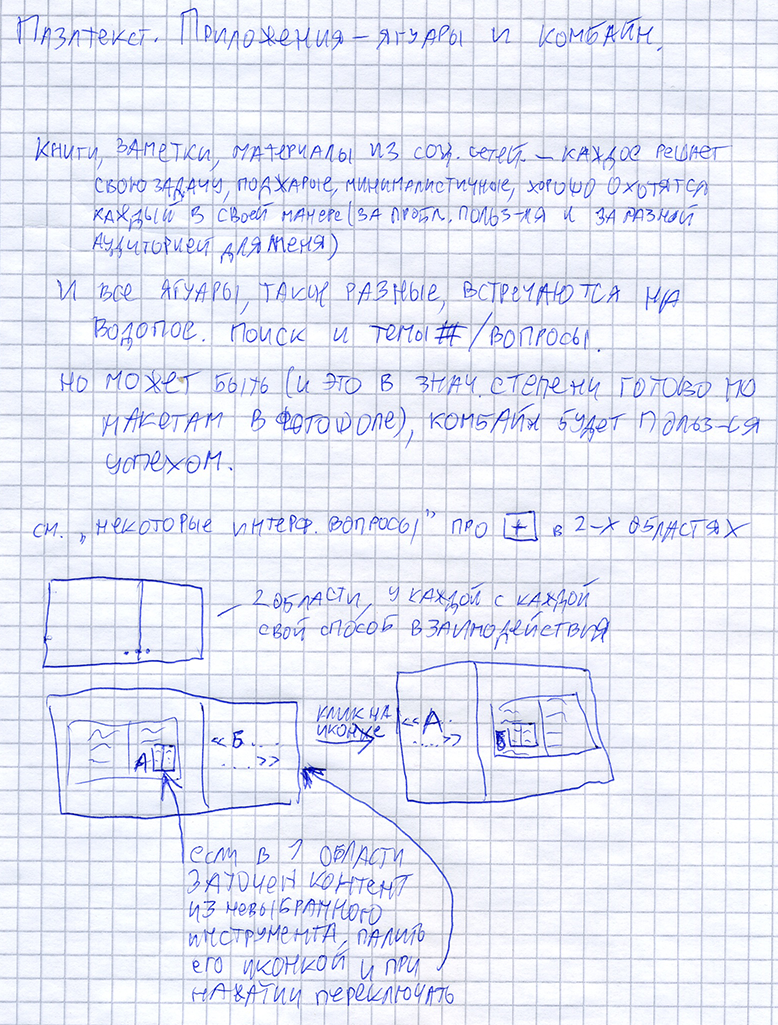 Пазлтекст. Приложения – ягуары и комбайн.
Книги, заметки, материалы из соц. сетей. – каждое решает
свою задачу, поджарые, минималистичные, хорошо охотятся
каждый в своей манере (за пробл. польз-ля и за разной
аудиторией для меня)
И все ягуары, такие разные, встречаются на
водопое. Поиск и темы # / вопросы.
Но может быть (и это в знач. степени готово по
макетам в фотошопе), комбайн будет польз-ся
успехом.
см. „некоторые интерф. вопросы" про + в 2-х областях
2 области, у каждой с каждой
свой способ взаимодействия
клик на
иконке
А
«Б...
....»
«А..
....»
Б
если в 1 области
заточен контент
из невыбранного
инструмента, палить
его иконкой и при
нажатии переключать